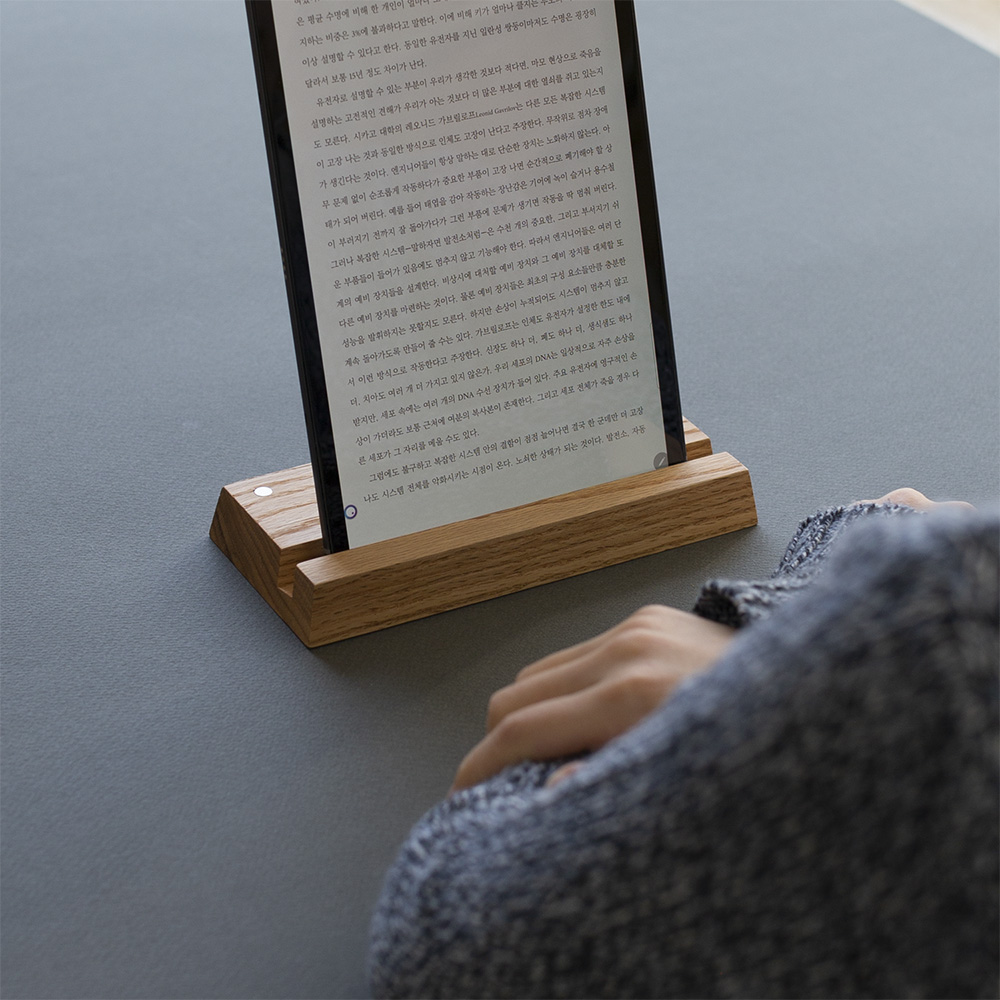 은 평균 수명에 비해 한 개인이
지하는 비중은 3%에 불과하다고 말한다. 이에 비해 키가 얼마나 클지는
이상 설명할 수 있다고 한다. 동일한 유전자를 지닌 일란성 쌍둥이마저도 수명은 굉장히
달라서 보통 15년 정도 차이가 난다.
유전자로 설명할 수 있는 부분이 우리가 생각한 것보다 적다면, 마모 현상으로 죽음을
설명하는 고전적인 견해가 우리가 아는 것보다 더 많은 부분에 대한 열쇠를 쥐고 있는지
도 모른다. 시카고 대학의 레오니드 가브릴로프Leonid Gavrilov는 다른 모든 복잡한 시스템
이 고장 나는 것과 동일한 방식으로 인체도 고장이 난다고 주장한다. 무작위로 점차 장애
가 생긴다는 것이다. 엔지니어들이 항상 말하는 대로 단순한 장치는 노화하지 않는다. 아
무 문제 없이 순조롭게 작동하다가 중요한 부품이 고장 나면 순간적으로 폐기해야 할 상
태가 되어 버린다. 예를 들어 태엽을 감아 작동하는 장난감은 기어에 녹이 슬거나 용수철
이 부러지기 전까지 잘 돌아가다가 그런 부품에 문제가 생기면 작동을 딱 멈춰 버린다.
그러나 복잡한 시스템—말하자면 발전소처럼—은 수천 개의 중요한, 그리고 부서지기 쉬
운 부품들이 들어가 있음에도 멈추지 않고 기능해야 한다. 따라서 엔지니어들은 여러 단
계의 예비 장치들을 설계한다. 비상시에 대처할 예비 장치와 그 예비 장치를 대체할 또
다른 예비 장치를 마련하는 것이다. 물론 예비 장치들은 최초의 구성 요소들만큼 충분한
성능을 발휘하지는 못할지도 모른다. 하지만 손상이 누적되어도 시스템이 멈추지 않고
계속 돌아가도록 만들어 줄 수는 있다. 가브릴로프는 인체도 유전자가 설정한 한도 내에
서 이런 방식으로 작동한다고 주장한다. 신장도 하나 더, 폐도 하나 더, 생식샘도 하나
더, 치아도 여러 개 더 가지고 있지 않은가. 우리 세포의 DNA는 일상적으로 자주 손상을
받지만, 세포 속에는 여러 개의 DNA 수선 장치가 들어 있다. 주요 유전자에 영구적인 손
상이 가더라도 보통 근처에 여분의 복사본이 존재한다. 그리고 세포 전체가 죽을 경우 다
른 세포가 그 자리를 메울 수도 있다.
그럼에도 불구하고 복잡한 시스템 안의 결함이 점점 늘어나면 결국 한 군데만 더 고장
나도 시스템 전체를 악화시키는 시점이 온다. 노쇠한 상태가 되는 것이다. 발전소, 자동